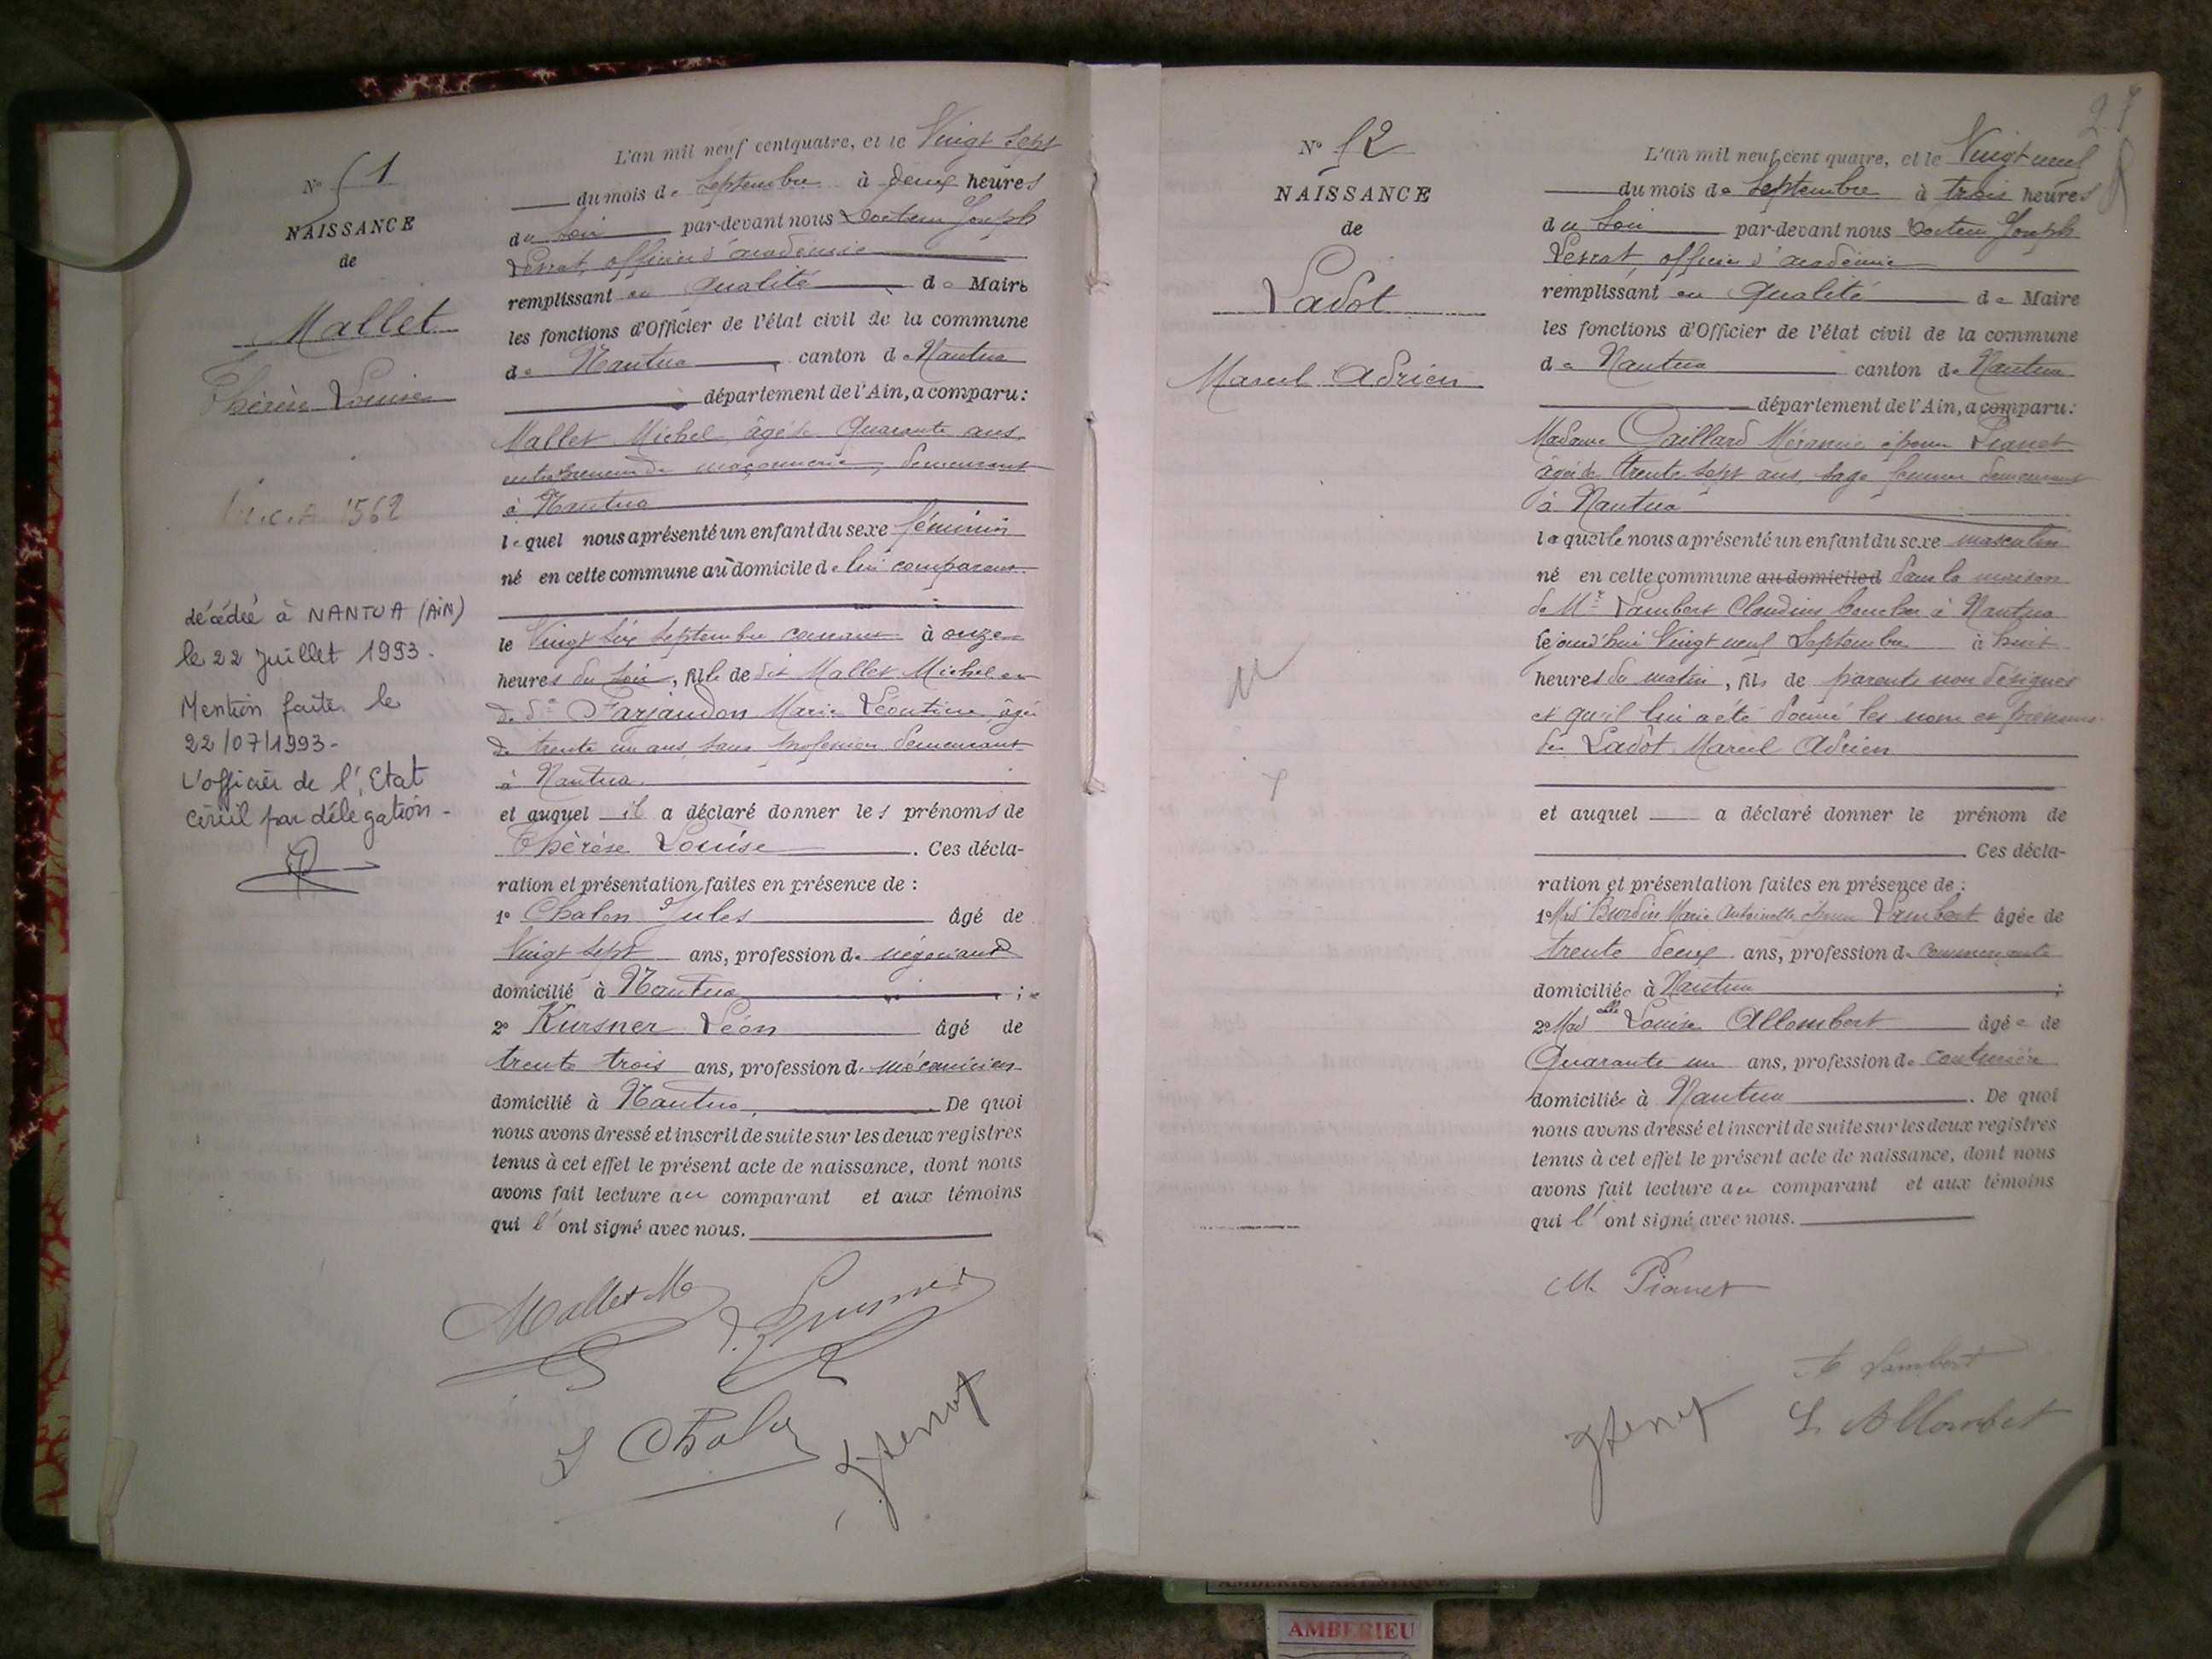 N° 51
NAISSANCE
de
Mallet
Thérèse Louise
1562
décédée à NANTUA (AIN)
le 22 Juillet 1993.
Mention faite le
22/07/1993-
L'officier de l'Etat
civil par délégation-
L'an mil neuf cent quatre, et le Vingt sept
du mois de Septembre à deux heures
du soir par-devant nous Docteur Joseph
officier d'académie
remplissant en qualité de Maire
les fonctions d'Officier de l'état civil de la commune
de Nantua canton de Nantua
département de l'Ain, a comparu:
Mallet Michel, âgé de Quarante ans
entrepreneur de maçonnerie, demeurant
à Nantua
lequel nous a présenté un enfant du sexe féminin
né en cette commune au domicile de lui comparant
le Vingt six Septembre courant à onze
heures du soir, fille de dit Mallet Michel et
de de Farjaudon Marie Léontine, âgée
de trente un ans, sans profession demeurant
à Nantua
et auquel il a déclaré donner les prénoms de
Thérèse Louise. Ces décla-
ration et présentation faites en présence de :
1° Chalon Jules âgé de
Vingt sept ans, profession de négociant
domicilié à Nantua ;
2° Kursner Léon âgé de
trente trois ans, profession de mécanicien
domicilié à Nantua. De quoi
nous avons dressé et inscrit de suite sur les deux registres
tenus à cet effet le présent acte de naissance, dont nous
avons fait lecture au comparant et aux témoins
qui l'ont signé avec nous.
Mallet M
N° 52
NAISSANCE
de
Ladot
Marcel Adrien
27
L'an mil neuf cent quatre, et le Vingt neuf
du mois de Septembre à trois heures
du Soir par-devant nous Docteur Joseph
officier d'académie
remplissant en Qualité de Maire
les fonctions d'Officier de l'état civil de la commune
de Nantua canton de Nantua
département de l'Ain, a comparu:
Madame Gaillard épouse Pianet
âgée de trente sept ans, sage femme demeurant
à Nantua
laquelle nous a présenté un enfant du sexe masculin
né en cette commune au domicile d dans la maison
de Mr Lambert Claudius boucher à Nantua
cejourd'hui Vingt neuf Septembre à huit
heures du matin, fils de parents non désignés
et qu'il lui a été donné les nom et prénoms
de Ladot Marcel Adrien
et auquel a déclaré donner le prénom de
Ces décla-
ration et présentation faites en présence de :
1° Made Burdin Marie Antoinette épouse Lambert âgée de
trente deux ans, profession de commerçante
domiciliée à Nantua ;
2° Madelle Louise Allombert âgée de
Quarante un ans, profession de couturière
domiciliée à Nantua. De quoi
nous avons dressé et inscrit de suite sur les deux registres
tenus à cet effet le présent acte de naissance, dont nous
avons fait lecture au comparant et aux témoins
qui l'ont signé avec nous.
M. Pianet
Lambert
L Allombert
AMBERIEU ARTISTIQUE
AMBERIEU